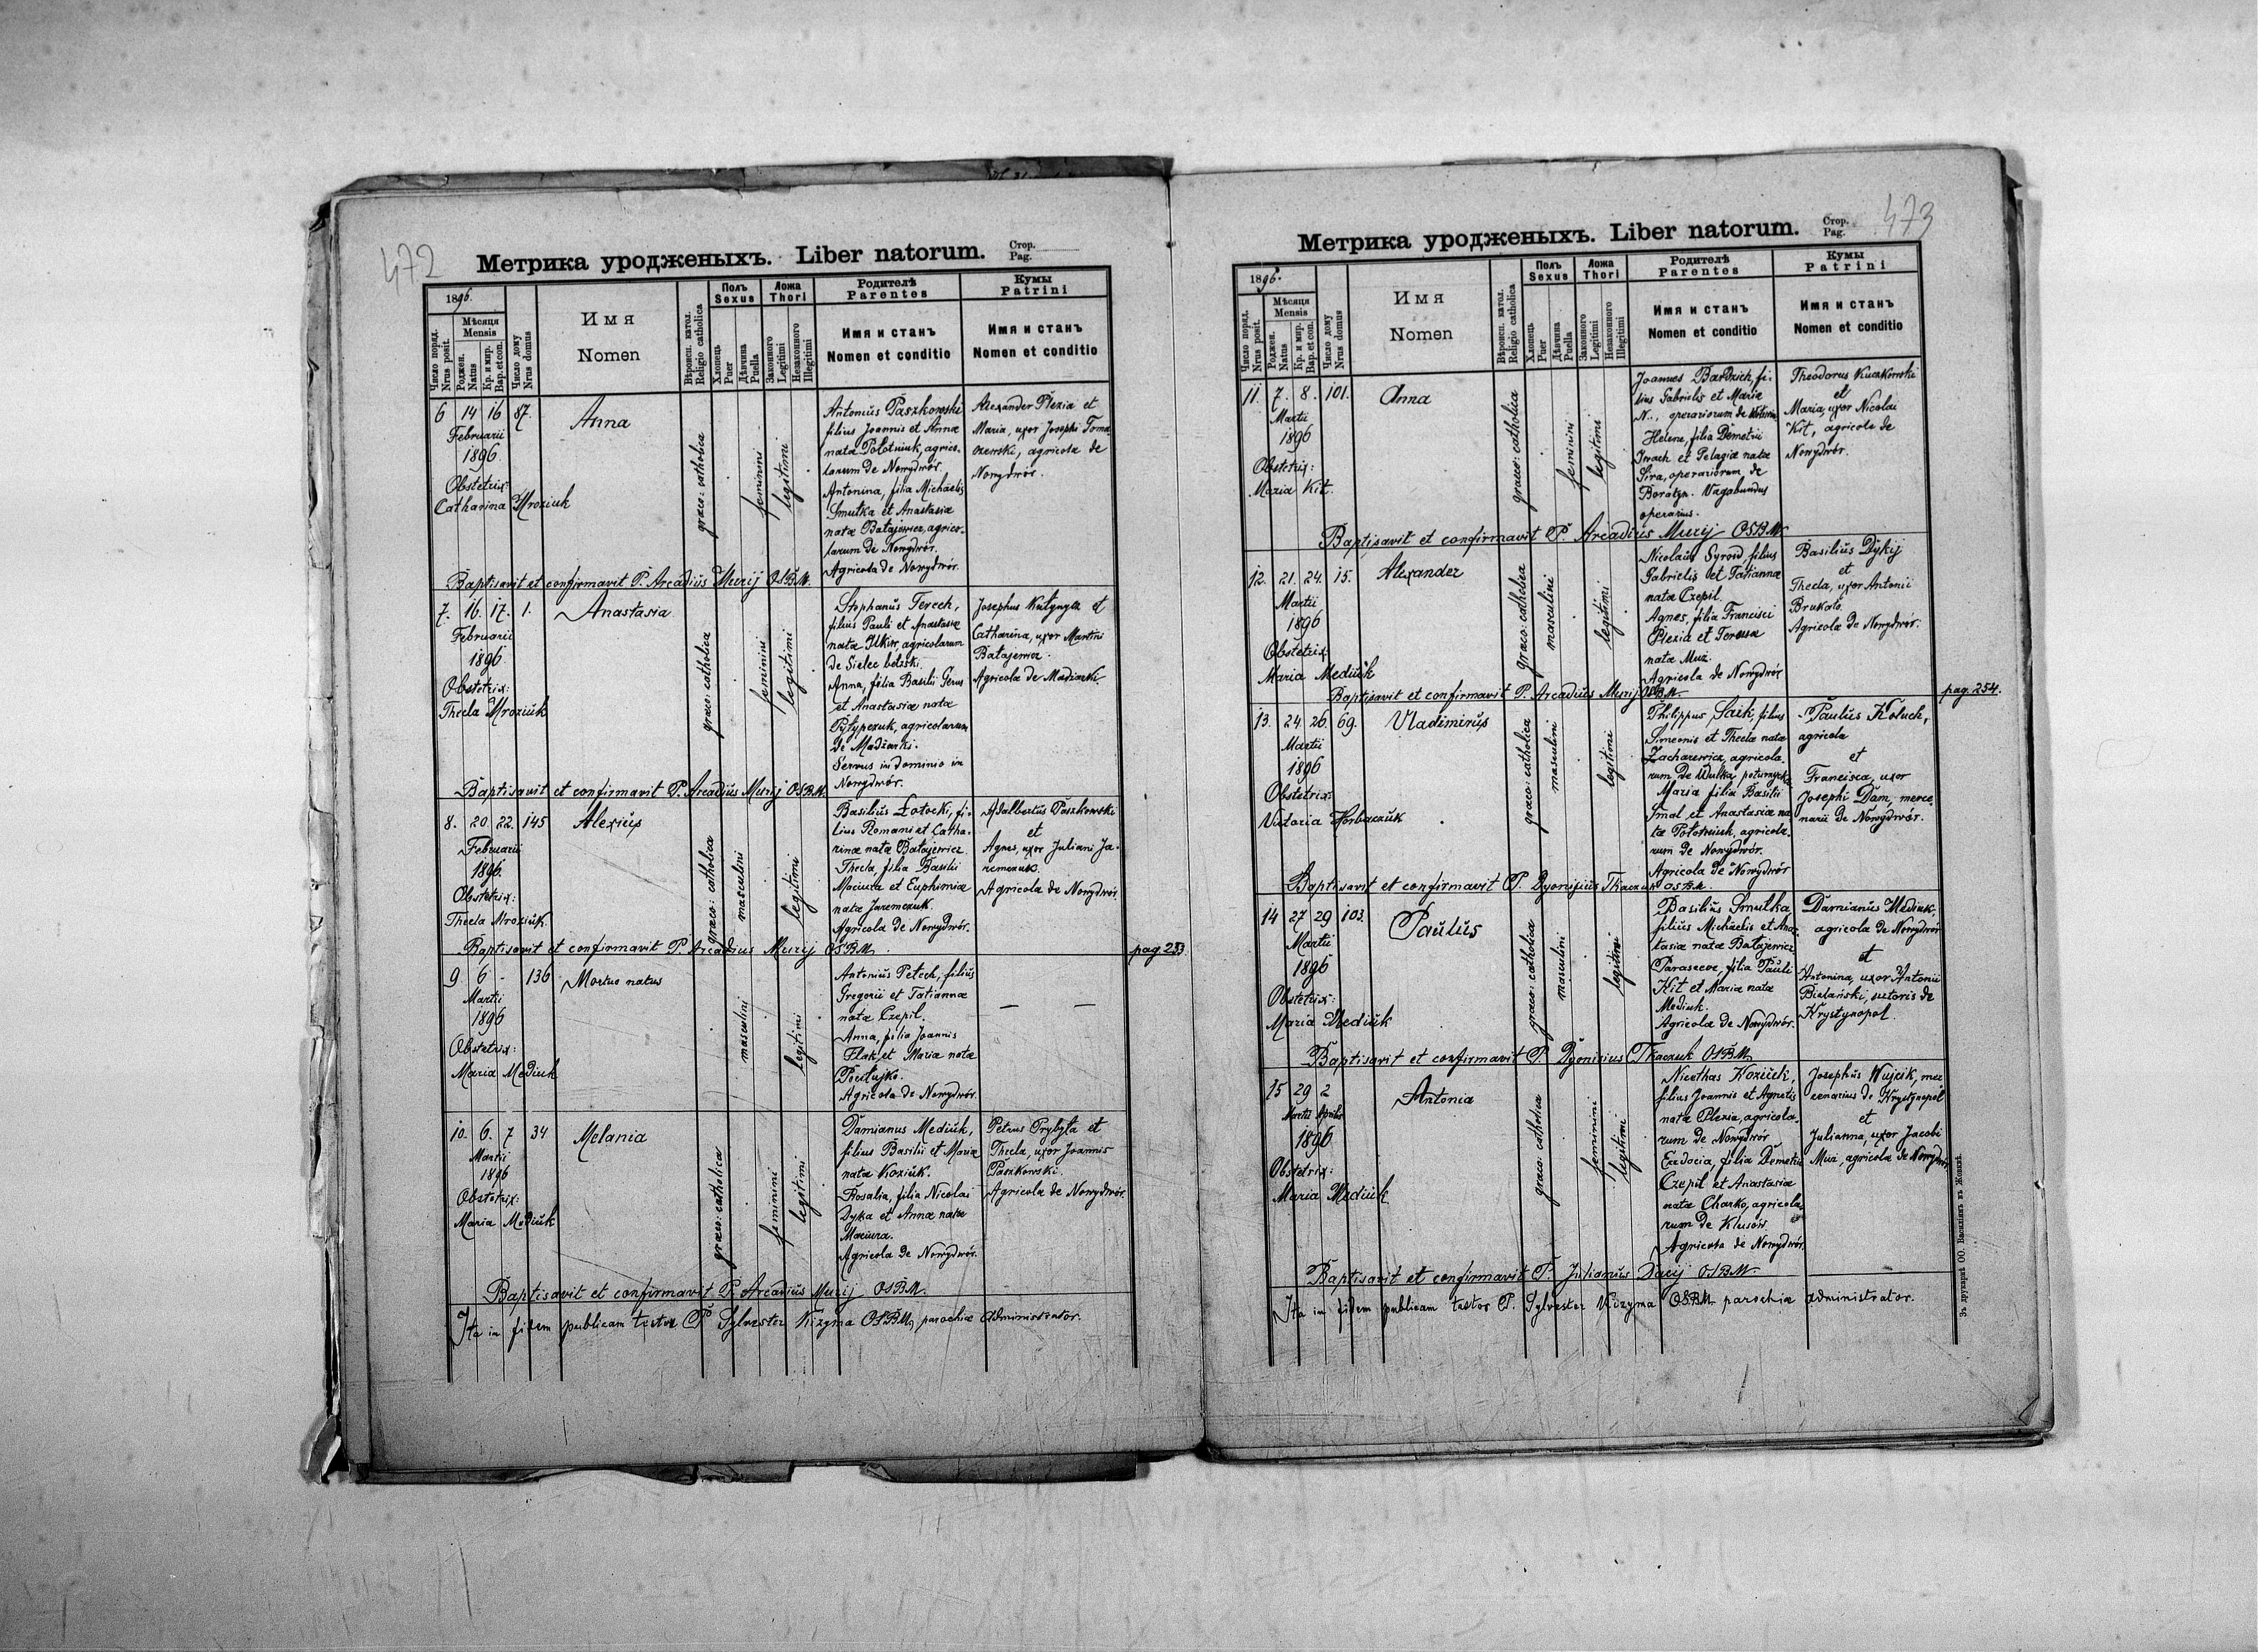 472
Метрика уродженыхъ. Liber natorum.
Стор.
Pag.
1896.
Число поряд.
Nrus posit.
Мѣсяця
Mensis
Роджен.
Natus
Кр. и мир.
Bap. et con.
Число дому
Nrus domus
Имя
Nomen
Вѣроисп. катол.
Religio catholica
Полъ
Sexus
Хлопець
Puer
Дѣвчина
Puella
Ложа
Thori
Законного
Legitimi
Незаконного
Illegitimi
Родителѣ
Parentes
Имя и станъ
Nomen et conditio
Кумы
Patrini
Имя и станъ
Nomen et conditio
6 14 16 87.
Februarii
1896.
Obstetrix:
Catharina Mroziuk
Anna
graeco: catholica
feminini
legitimi
Antonius Paszkowski
filius Joannis et Annæ
natæ Połotniuk, agrico-
larum de Nowydwór.
Antonina, filia Michaelis
Smutka et Anastasiæ
natæ Batajewicz, agrico-
larum de Nowydwór.
Agricola de Nowydwór.
Alexander Plezia et
Maria, uxor Josephi Toma
szewski, agricolæ de
Nowydwór.
Baptisavit et confirmavit P. Arcadius Muryj OSBM.
7. 16. 17. 1.
Februarii
1896
Obstetrix:
Thecla Mroziuk
Anastasia
graeco: catholica
feminini
legitimi
Stephanus Terech,
filius Pauli et Anastasiæ
natæ Ilkiw, agricolarum
de Sielec bełzski.
Anna, filia Basilii Gerus
et Anastasiæ natæ
Pyłypczuk, agricolarum
de Madżarki.
Servus in dominio in
Nowydwór.
Josephus Kułynycz et
Catharina, uxor Martini
Batajewicz.
Agricolæ de Madżarki.
Baptisavit et confirmavit P. Arcadius Muryj OSBM.
8. 20. 22. 145
Februarii
1896.
Obstetrix:
Thecla Mroziuk
Alexius
graeco: catholica
masculini
legitimi
Basilius Łotocki, fi-
lius Romani et Catha-
rinæ natæ Batajewicz
Thecla, filia Basilii
Maciura et Euphimiæ
natæ Jaremczuk.
Agricola de Nowydwór.
Adalbertus Paszkowski
et
Agnes, uxor Juliani Ja-
remczuk.
Agricolæ de Nowydwór.
Baptisavit et confirmavit P. Arcadius Muryj OSBM.
pag 253
9 6 - 136
Martii
1896
Obstetrix:
Maria Mediuk
Mortuo natus
masculini
legitimi
Antonius Petech, filius
Gregorii et Tatiannæ
natæ Czepil.
Anna, filia Joannis
Flak, et Mariæ natæ
Agricola de Nowydwór.
— —
10. 6. 7 34
Martii
1896
Obstetrix:
Maria Mediuk
Melania
graeco: catholica
feminini
legitimi
Damianus Mediuk,
filius Basilii et Mariæ
natæ Koziuk.
Rosalia, filia Nicolai
Dyka et Annæ natæ
Maciura.
Agricola de Nowydwór.
Petrus Pryłyta et
Thecla, uxor Joannis
Paszkowski.
Agricolæ de Nowydwór.
Baptisavit et confirmavit P. Arcadius Muryj OSBM.
Ita in fidem publicam testor P. Sylvester Kizyma OSBM, parochiæ administrator.
473
Метрика уродженыхъ. Liber natorum.
Стор.
Pag.
1896.
Число поряд.
Nrus posit.
Мѣсяця
Mensis
Роджен.
Natus
Кр. и мир.
Bap. et con.
Число дому
Nrus domus
Имя
Nomen
Вѣроисп. катол.
Religio catholica
Полъ
Sexus
Хлопець
Puer
Дѣвчина
Puella
Ложа
Thori
Законного
Legitimi
Незаконного
Illegitimi
Родителѣ
Parentes
Имя и станъ
Nomen et conditio
Кумы
Patrini
Имя и станъ
Nomen et conditio
11. 7. 8. 101.
Martii
1896
Obstetrix:
Maria Kit.
Anna
graeco: catholica
feminini
legitimi
Joannes Bardzich, fi-
lius Gabrielis et Mariæ
N., operariorum de
Helena, filia Demetrii
Iwach et Pelagiæ natæ
Sira, operariorum de
Boratyn. Vagabundus
operarius.
Theodorus Kuczkowski
et
Maria, uxor Nicolai
Kit, agricolæ de
Nowydwór.
Baptisavit et confirmavit P. Arcadius Muryj OSBM.
12. 21. 24. 15.
Martii
1896
Obstetrix
Maria Mediuk
Alexander
graeco: catholica
masculini
legitimi
Nicolaus Syroid, filius
Gabrielis et Tatiannæ
natæ Czepil.
Agnes, filia Francisci
Plezia et Teressæ
natæ Muz.
Agricola de Nowydwór
Basilius Dykij
et
Thecla, uxor Antonii
Brukało.
Agricolæ de Nowydwór.
Baptisavit et confirmavit P. Arcadius Muryj OSBM.
pag. 254.
13. 24. 26. 69.
Martii
1896
Obstetrix:
Victoria Horbaczuk
Vladimirus
graeco: catholica
masculini
legitimi
Philippus Saik, filius
Simeonis et Theclæ natæ
Zacharewicz, agricola-
rum de Wulka poturzycka
Maria filia Basilii
Smal et Anastasiæ na-
tæ Połotniuk, agricola-
rum de Nowydwór.
Agricola de Nowydwór
Paulus Koluch,
agricola
et
Francisca, uxor
Josephi Dam, merce-
narii de Nowydwór.
Baptisavit et confirmavit P. Dyonisius Tkaczuk OSBM.
14 27 29 103.
Martii
1896
Obstetrix:
Maria Mediuk
Paulus
graeco: catholica
masculini
legitimi
Basilius Smutka
filius Michaelis et Anas-
tasiæ natæ Batajewicz
Parascea, filia Pauli
Kit et Mariæ natæ
Mediuk.
Agricolæ de Nowydwór.
Damianus Mediuk,
agricola de Nowydwór
et
Antonina, uxor Antonii
Bielański, sutoris de
Krystynopol
Baptisavit et confirmavit P. Dyonisius Tkaczuk OSBM.
15 29 2
Martii Aprilis
1896
Obstetrix:
Maria Mediuk
Antonia
graeco: catholica
feminini
legitimi
Nicethas Koziuk,
filius Joannis et Agnetis
natæ Plezia, agricola-
rum de Nowydwór
Eudocia, filia Demetrii
Czepil et Anastasiæ
natæ Charko, agricola-
rum de Klusów.
Agricola de Nowydwór.
Josephus Wujcik, mer
cenarius de Krystynopol
et
Julianna, uxor Jacobi
Muz, agricolæ de Nowydwór
Baptisavit et confirmavit P. Julianus Dacij OSBM.
Ita in fidem publicam testor P. Sylvester Kizyma OSBM parochiæ administrator.
Зъ друкарнѣ ОО. Василіянъ въ Жовквѣ.